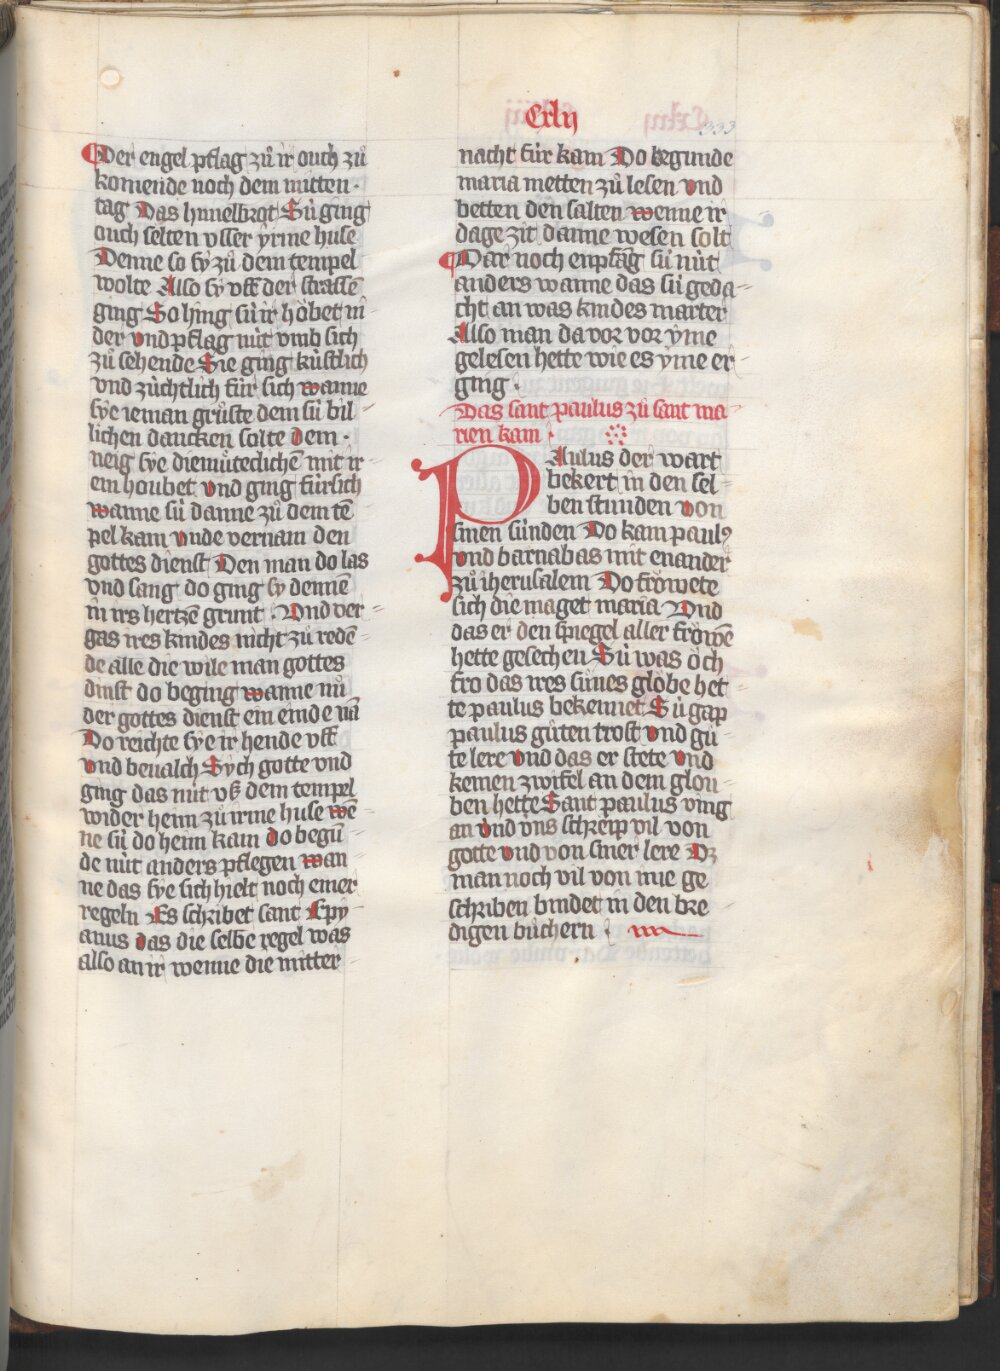 Cxlij
333
Der engel pflag zů ir ouch zů
komende noch dem mitten
tag Das himelbrot Sü ging
ouch selten vsser yrme huse
Denne so sy zů dem tempel
wolte Also sy vff der strassē
ging So hing sü ir höbet in
der vnd pflag nüt vmb sich
zů sehende Sie ging kůstlich
vnd züchtlich für sich wanne
sye ieman grůste dem sü bil
lichen dancken solte dem
neig sye diemůteclichē mit ir
em houbet vnd ging fürsich
wanne sü danne zů dem tē
pel kam vnde vernam den
gottes dienst Den man do las
vnd sang do ging sy dennē
in irs hertzē grunt Vnd ver
gas ires kindes nicht zů redē
de alle die wile man gottes
dinst do beging wanne nů
der gottes dienst ein ende nā
Do reichte sye ir hende vff
vnd beualch Sych gotte vnd
ging das nüt vß dem tempel
wider heim zů irme huse wē
ne sü do heim kam do begū
de nüt anders pflegen wan
ne das sye sich hielt noch emer
regeln Es schribet sant Epy
anus das die selbe regel was
also an ir wenne die mitter
nacht für kam Do begunde
maria metten zů lesen vnd
betten den salten wenne ir
dage zit danne wesen solt
Dar noch enpfag sü nüt
anders wanne das sü geda
cht an was kindes marter
Also man da vor vor yme
gelesen hette wie es yme er
ging
Das sant paulus zů sant ma
rien kam
PAulus der wart
bekert in den sel
ben stunden von
sinen sünden Do kam paulꝰ
vnd barnabas mit enander
zů iherusalem Do fröwete
sich die maget maria Vnd
das er den spiegel aller fröwē
hette gesechen Sü was öch
fro das ires sünes globe het
te paulus bekennet Sü gap
paulus gůten trost vnd gů
te lere vnd das er stete vnd
keinen zwifel an dem glou
ben hette Sant paulus ving
an vnd vns schreip vil von
gotte vnd von siner lere Dz
man noch vil von ime ge
schriben vindet in den bre
digen bůchern